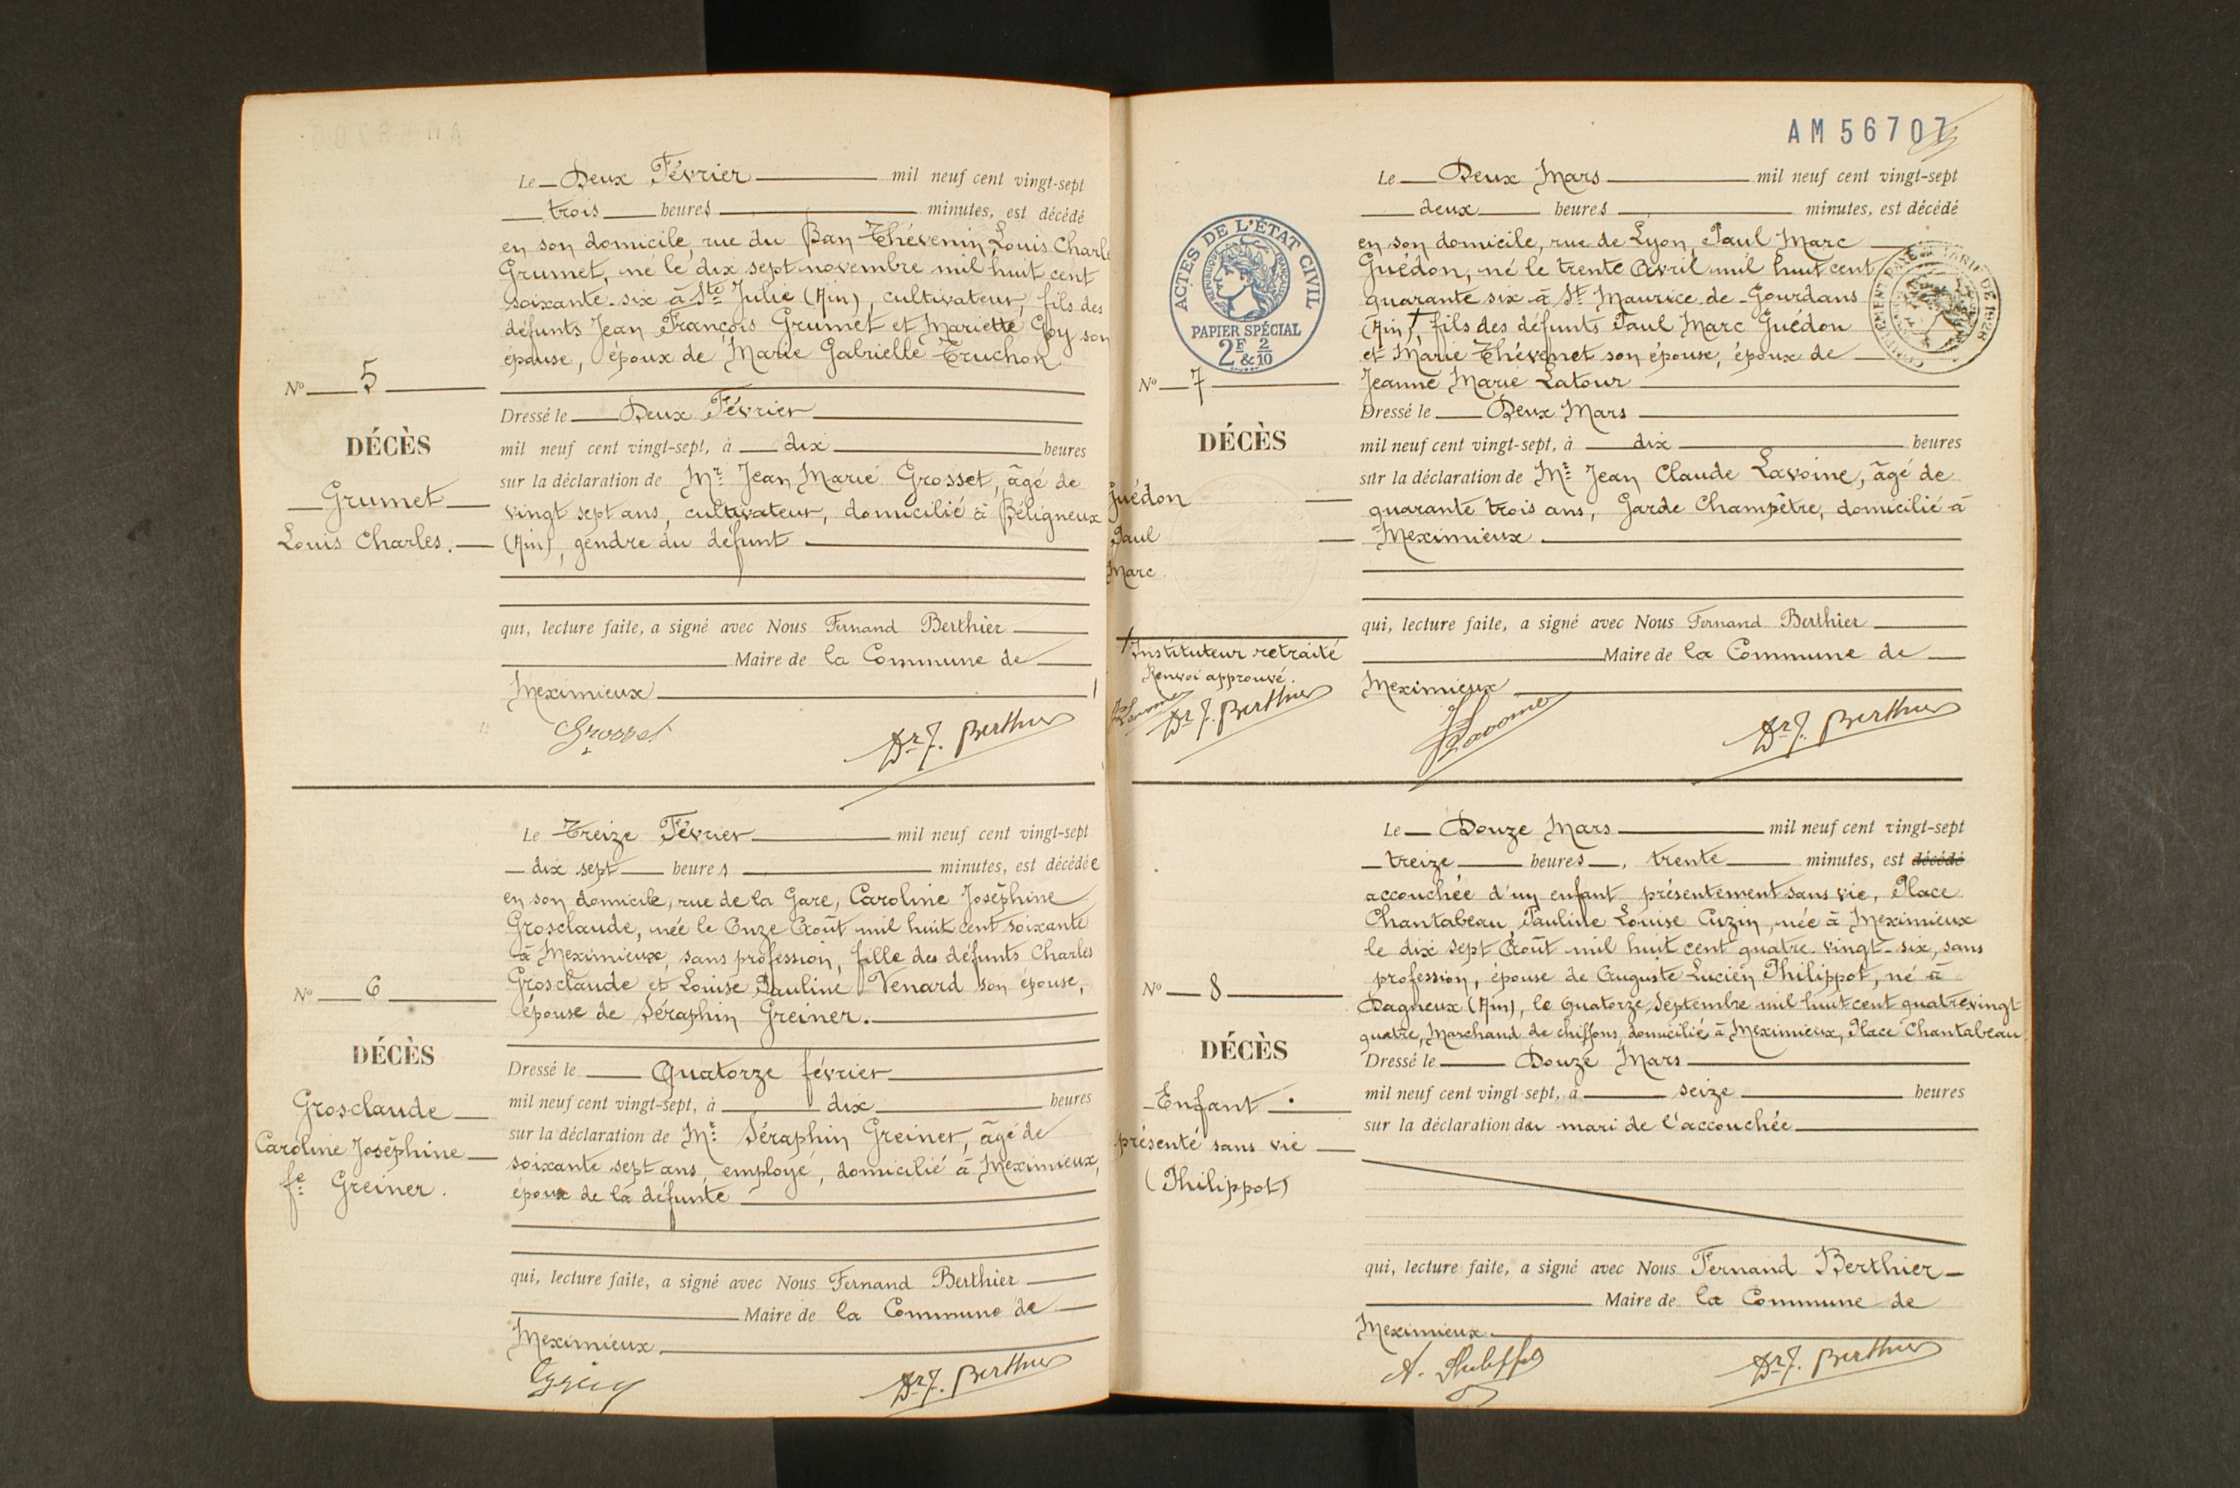 Le Deux Février mil neuf cent vingt-sept
trois heures minutes, est décédé
en son domicile, rue du Ban Thévenin, Louis Charle
Grumet, né le dix sept novembre mil huit cent
soixante-six à Ste Julie (Ain), cultivateur, fils des
défunts Jean François Grumet et Mariette Goy son
épouse, époux de Marie Gabrielle Truchon
Nº 5
DÉCÈS
Grumet
Louis Charles.
Dressé le Deux Février
mil neuf cent vingt-sept, à dix heures
sur la déclaration de Mr Jean Marie Grosset, âgé de
vingt sept ans, cultivateur, domicilié à Béligneux
(Ain), gendre du défunt
qui, lecture faite, a signé avec Nous Fernand Berthier
Maire de la Commune de
Meximieux
Grosset
Dr F. Berthier
Le Treize Février mil neuf cent vingt-sept
dix sept heures minutes, est décédée
en son domicile, rue de la Gare, Caroline Joséphine
Grosclaude, née le Onze Août mil huit cent soixante
à Meximieux, sans profession, fille des défunts Charles
Grosclaude et Louise Pauline Venard son épouse,
épouse de Séraphin Greiner.
Nº 6
DÉCÈS
Grosclaude
Caroline Joséphine
fe Greiner.
Dressé le Quatorze février
mil neuf cent vingt-sept, à dix heures
sur la déclaration de Mr Séraphin Greiner, âgé de
soixante sept ans, employé, domicilié à Meximieux,
époux de la défunte
qui, lecture faite, a signé avec Nous Fernand Berthier
Maire de la Commune de
Meximieux.
Dr F. Berthier
AM 56707
Le Deux Mars mil neuf cent vingt-sept
deux heures minutes, est décédé
en son domicile, rue de Lyon, Paul Marc
Guédon, né le trente Avril mil huit cent
quarante six à St Maurice-de-Gourdans
(Ain) + fils des défunts Paul Marc Guédon
et Marie Thévenet son épouse, époux de
Jeanne Marie Latour
ACTES DE L'ÉTAT CIVIL
RÉPUBLIQUE FRANÇAISE
PAPIER SPÉCIAL
2F & 2/10
Nº 7
DÉCÈS
Guédon
Paul
Marc.
Dressé le Deux Mars
mil neuf cent vingt-sept, à dix heures
sur la déclaration de Mr Jean Claude Lavoine, âgé de
quarante trois ans, Garde Champêtre, domicilié à
Meximieux
qui, lecture faite, a signé avec Nous Fernand Berthier
Maire de la Commune de
Meximieux
+ Instituteur retraité
Renvoi approuvé.
Lavoine
Dr F. Berthier
Lavoine
Dr F. Berthier
Le Douze Mars mil neuf cent vingt-sept
treize heures, trente minutes, est décédé
accouchée d'un enfant présentement sans vie, Place
Chantabeau, Pauline Louise Cuzin, née à Meximieux
le dix sept Août mil huit cent quatre-vingt-six, sans
profession, épouse de Auguste Lucien Philippot, né à
Dagneux (Ain), le Quatorze Septembre mil huit cent quatre vingt
quatre, Marchand de chiffons, domicilié à Meximieux, Place Chantabeau.
Nº 8
DÉCÈS
Enfant
présenté sans vie
(Philippot)
Dressé le Douze Mars
mil neuf cent vingt-sept, à seize heures
sur la déclaration du mari de l'accouchée
qui, lecture faite, a signé avec Nous Fernand Berthier
Maire de la Commune de
Meximieux.
Dr F. Berthier